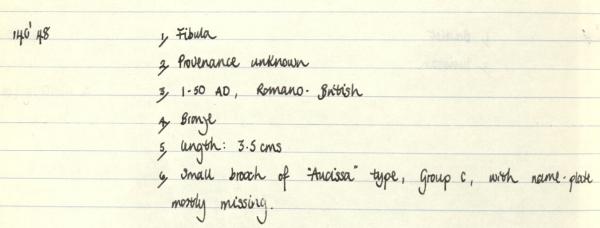 140'48 1, Fibula
2, Provenance unknown
3, 1-50 AD, Romano-British
4, Bronze
5, Length: 3.5 cms
6, Small brooch of "Aucissa" type, Group C, with name-plate
mostly missing.